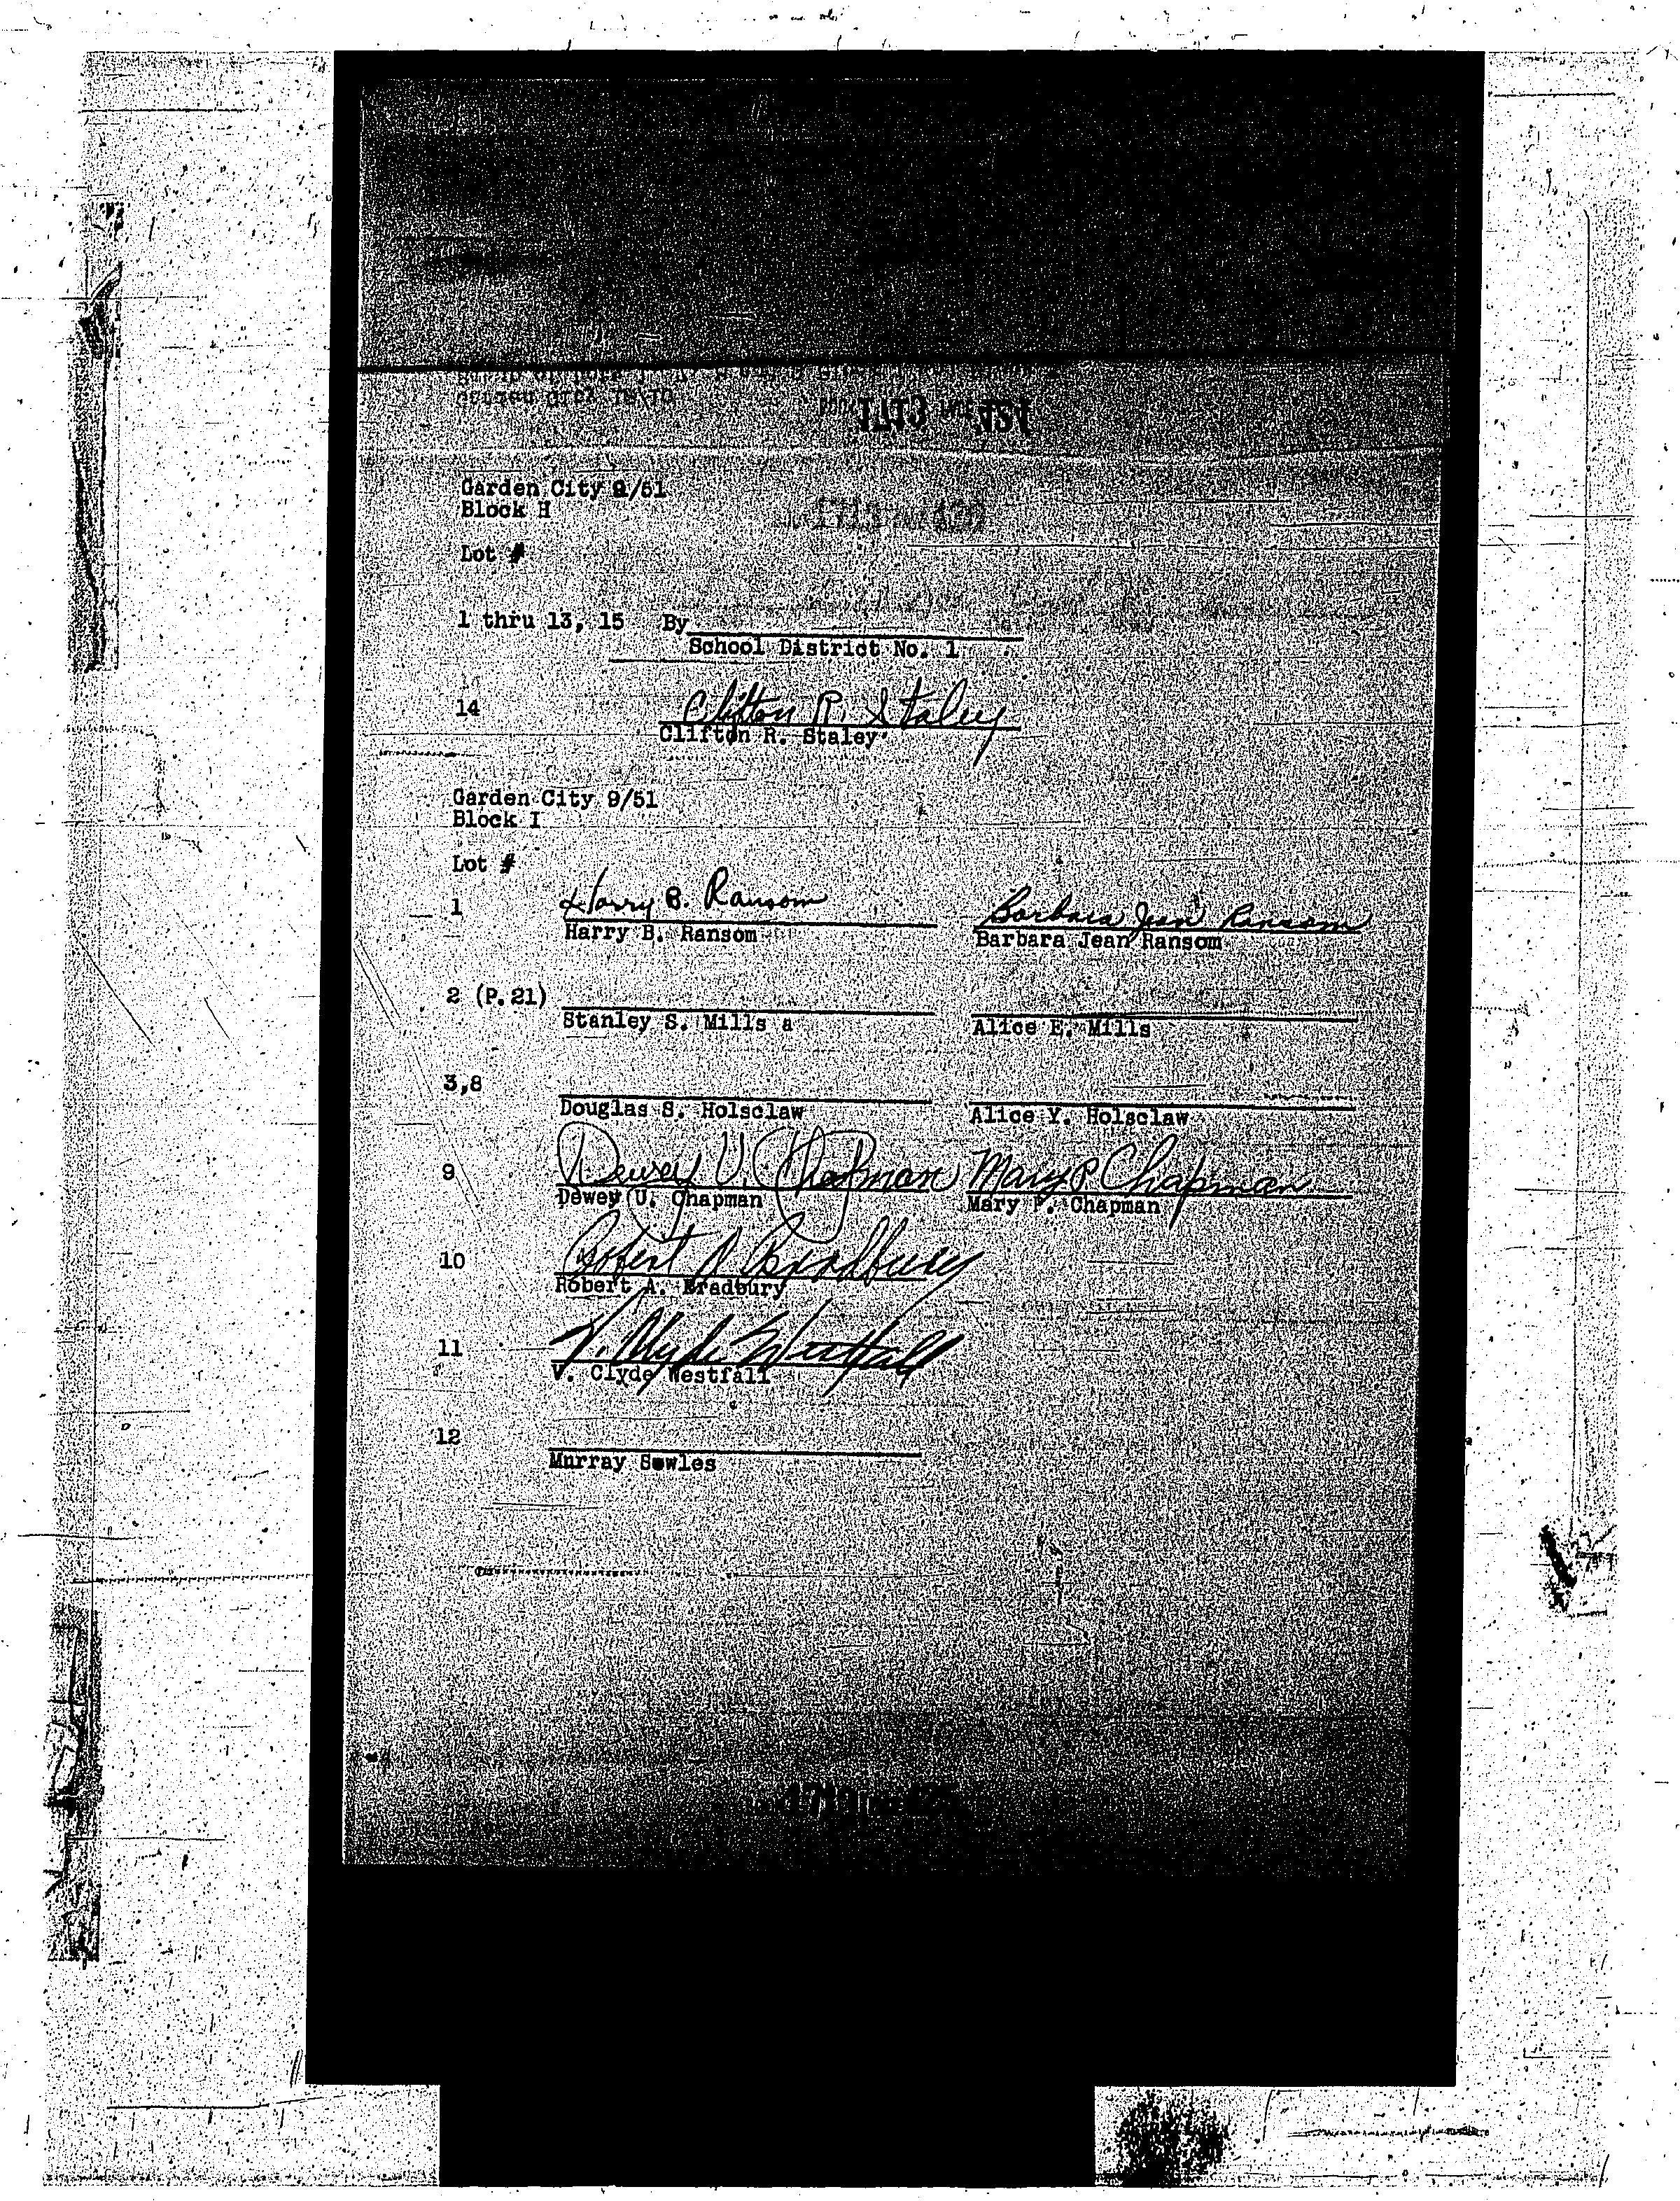 Garden City 9/51
Block H
Lot #
1 thru 13, 15 By
School District No. 1
14 Clifton R. Staley
Clifton R. Staley
Garden City 9/51
Block I
Lot #
1 Harry B. Ransom Barbara Jean Ransom
Harry B. Ransom Barbara Jean Ransom
2 (P.21)
Stanley S. Mills a Alice E. Mills
3,8
Douglas S. Holsclaw Alice Y. Holsclaw
9 Dewey U. Chapman Mary P Chapman
Dewey U. Chapman Mary P. Chapman
10 Robert A Bradbury
Robert A. Bradbury
11 V. Clyde Westfall
V. Clyde Westfall
12
Murray Sowles